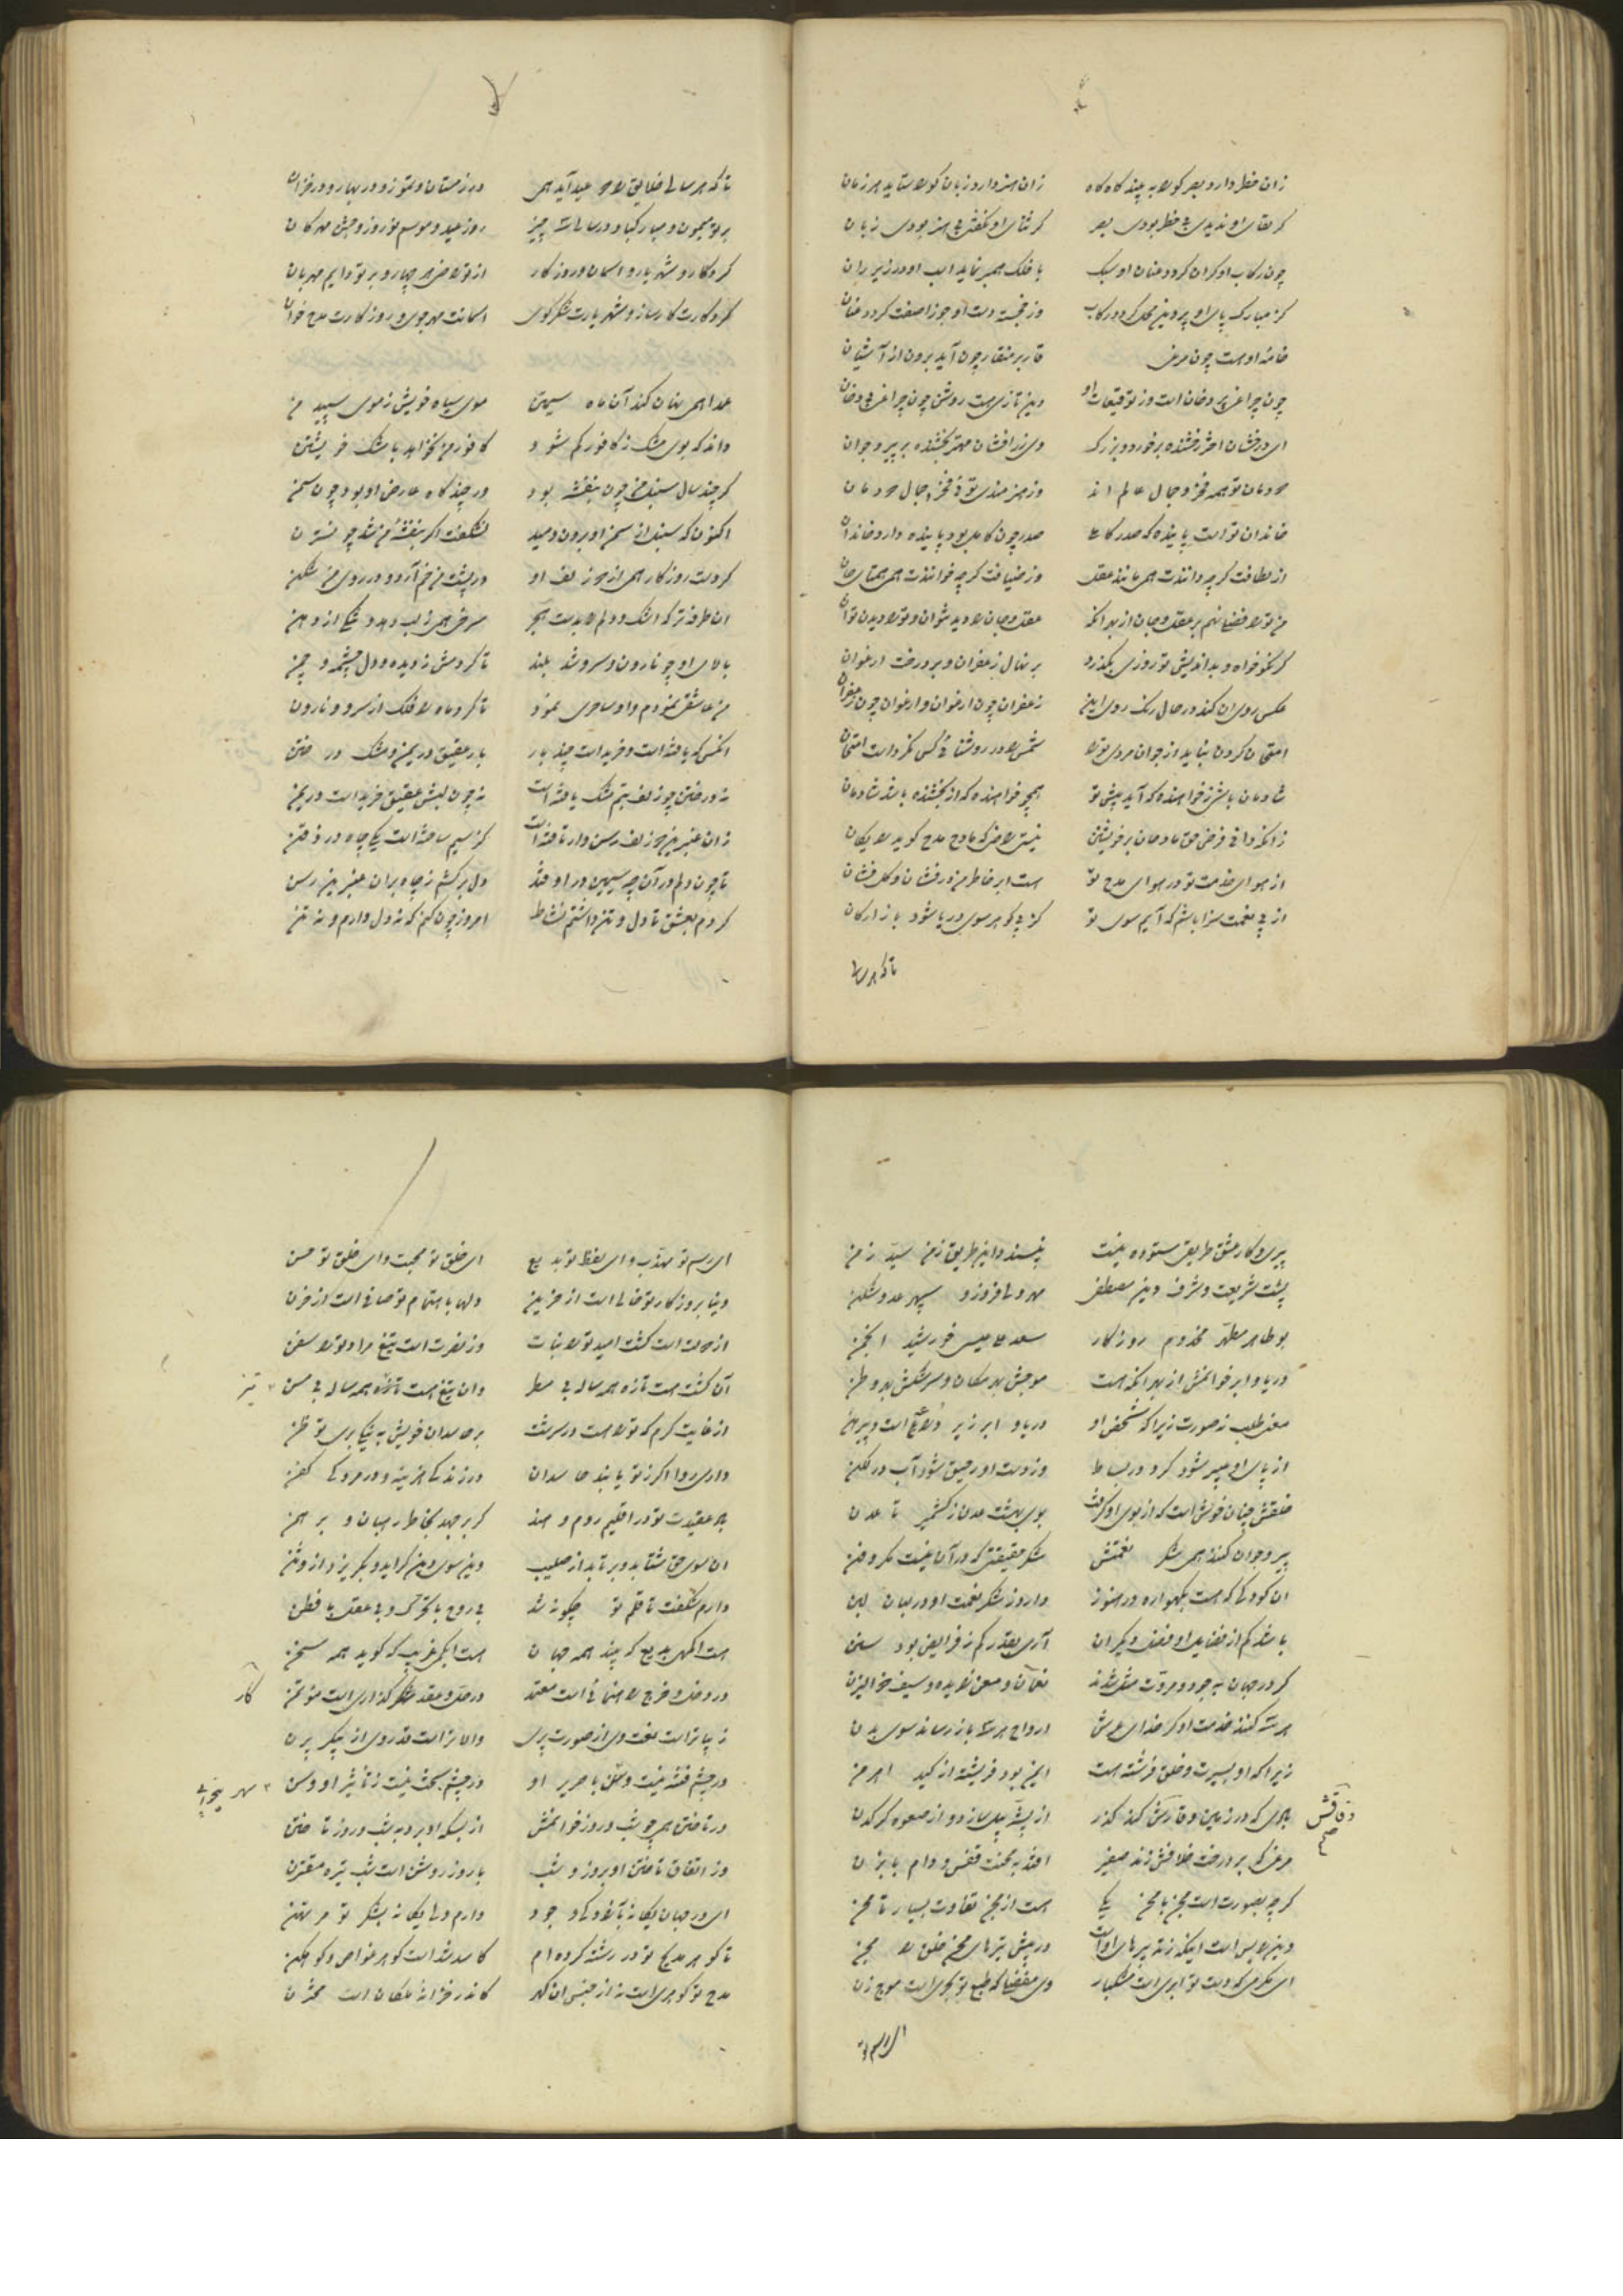 زان خطر دارد بصر کورا به بیند گاه گاه زان هنر دارد زبان کورا ستاید هر زمان
گر لقای او ندیدی بی خطر بودی بصر گر ثنای او نگفتی بی هنر بودی زبان
چون رکاب او گران گردد عنان او سبک با فلک همبر نماید اسب او در زیر ران
کز مبارک پای او پروین محل گردد رکاب وز خجسته دست او جوزا صفت گردد عنان
خامه او هست چون مرغی قار بر منقار چون آید برون از آشیان
چون چراغی پر دخان است وز توقیعات او دین تازی هست روشن چون چراغی بی دخان
ای درفشان اختر رخشنده بر خورد و بزرگ وی زرافشان مهتر بخشنده بر پیر و جوان
دودمان تو همه فخر و جمال عالم اند وز هنرمندی توئی فخر و جمال دودمان
خاندان تو است پاینده که صدر کاملی صدر چون کامل بود پاینده دارد خاندان
از لطافت گرچه دانندت همی مانند عقل وز ضیافت گرچه خوانندت همی همتای جان
من تو را فضل نهم بر عقل و جان از بهر آنکه عقل و جان را دید نتوان و تو را دیدن توان
گر نکوخواه و بداندیش تو روزی بگذرد بر نهال زعفران و بر درخت ارغوان
عکس روی آن کند در حال رنگ روی این زعفران چون ارغوان و ارغوان چون زعفران
امتحان کردن نباید از جوان مردی تو را شمس را در روشنائی کس نکرده است امتحان
شادمان باشی ز خواهنده که آید پیش تو همچو خواهنده که از بخشنده باشد شادمان
زانکه دانی فرض حق مادحان بر خویشتن نیستی راضی که مادح مدح گوید رایگان
از هوای خدمت تو در هوای مدح تو هست ابر خاطر من درفشان و گل فشان
از پی نعمت سزا باشد که آیم سوی تو کز پی گوهر سوی دریا شود بازارگان
تا که هر سالی
تا که هر سالی خلایق را دو عید آید همی در زمستان و تموز و در بهار و در خزان
بر تو میمون و مبارک باد در سال است چیز روز عید و موسم نوروز و جشن مهرگان
کردگار و شهریار و آسمان و روزگار از تو راضی هر چهار و بر تو دایم مهربان
کردگارت کارساز و شهریارت شکرگوی آسمانت مهرجوی و روزگارت مدح خوان
عمدا همی نهان کند آن ماه سیمتن موی سیاه خویش ز موی سپید من
داند که بوی مشک ز کافور کم شود کافور من نخواهد با مشک خویشتن
گر چند سال سنبل من چون بنفشه بود ور چند گاه عارض او بود چون سمن
اکنون که سنبل از سمن او برون دمید نشگفت اگر بنفشه من شد چو نسترن
گر دست روزگار همی از دو زلف او در پشت من خم آرد و در روی من شکن
آن طرفه تر که اشک و دلم را بدست هجر سرخی همی ز لب دهد و تنگی از دهن
بالای او چو نارون و سرو شد بلند تا کردمش ز دیده و دل چشمه و چمن
من عاشقی نمودم و او ساحری نمود تا کرد ماه را فلک از سرو و نارون
آنکس که یافته است و خریدست چند بار بار عقیق در یمن و مشک در ختن
نه در ختن چو زلف بتم مشک یافته است نه چون لبش عقیق خریدست در یمن
زان عنبرین دو زلف رسن وار تافته است کز سیم ساخته است یکی چاه در ذقن
تا چون دلم در آن چه سیمین دراوفتد دل برکشم ز چاه بدان عنبرین رسن
کردم بعشق تا دل و تن داشتم نشاط امروز چون کنم که نه دل دارم و نه تن
پیری و کار عشق طریقی ستوده نیست نپسندد این طریق ز من سید زمن
پشت شریعت و شرف دین مصطفی مهر ولی فروز و سپهر عدو شکن
بو طاهر مطهر مخدوم روزگار سعد علی عیسی خورشید انجمن
دریا و ابر خوانمش از بهر آنکه هست موجش بهر مکان و سرشکش بهر وطن
معنی طلب نه صورت زیرا که شخص او دریا و ابر زیر دراعه است و پیرهن
از پای او عبیر شود گرد در بساط وز دست او رحیق شود آب در لگن
خلقش چنان خوش است که از بوی او گرفت بوی بهشت عدن ز کشمیر تا عدن
پیر و جوان کنند همی شکر نعمتش شکر حقیقتی که در آن نیست مکر و فن
آن کودکی که هست بگهواره در هنوز دارد ز شکر نعمت او در لبان لبن
باشد کم از فضایل او فضل دیگران آری بقدر کم ز فرایض بود سنن
گر در جهان بجود و مروت مثل شدند نعمان و معن زایده و سیف ذی الیزن
هر سه کنند خدمت او گر خدای عرش ارواح هر سه باز رساند سوی بدن
زیرا که او بسیرت و خلق فرشته است ایمن بود فریشته از کید اهرمن
بادی که در زمین وقارش کند گذر از پشه پیل سازد و از صعوه کرگدن
وفاقش
مرغی که بر درخت خلافش زند صفیر افتد بمحنت قفس و دام بابزن
گرچه بصورت است مجن با محن یکی هست از مجن تفاوت بسیار تا محن
وین را بس است اینکه ز تدبیرهای او است در پیش تیرهای محن خلق را مجن
ای مکرمی که دست تو ابری است مشکبار وی مفضلی که طبع تو بحری است موج زن
ای رسم تو
ای رسم تو مهذب و ای لفظ تو بدیع ای خلق تو محبت و ای خلق تو حسن
دنیا بروزگار تو خالی است از حزین دلها باهتمام تو صافی است از حزن
از دولت است کشت امید تو را نبات وز نصرت است تیغ مراد تو را سفن
آن کشت هست تازه همه ساله بی مطر وان تیغ هست تیز همه ساله بی مسن
تیز
از غایت کرم که تو را هست در سرشت بر حاسدان خویش به نیکی بری تو ظن
داری روا اگر ز تو یابند حاسدان در زندگی هزینه و در مردگی کفن
گر عقیدت تو در اقلیم روم و هند گر برجهد بخاطر رهبان و برهمن
آن سوی حق شتابد و برتابد از صلیب وین سوی دین گراید و بگریزد از وثن
دارم شگفت تا قلم تو چگونه شد بی روح با تحرک و بی عقل با فطن
هست اکمهی بدیع که بیند همه جهان هست ابکمی غریب که گوید همه سخن
در دخل و خرج راهنمائی است معتمد در حل و عقد کارگذاری است مؤتمن
کار
زیباتر است لفت وی از صورت پری والاتر است قدر وی از پیکر پرن
در چشم فتنه نیست وسن با صریر او در چشم بخت نیست ز تأثیر او وسن
در تاختن همی چو شب و روز خوانمش از بسکه او برد به شب و روز تاختن
وز اتفاق تاختن او بروز و شب با روز روشن است شب تیره مقترن
ای در جهان یگانه بآزادگی و جود دارم دلی یگانه بشکر تو مرتهن
تا گوهر مدیح تو در رشته کرده ام کاسد شده است گوهر غواص و کوهکن
مدح تو گوهری است نه از جنس آن گهر کاندر خزانه ملکان است مختزن